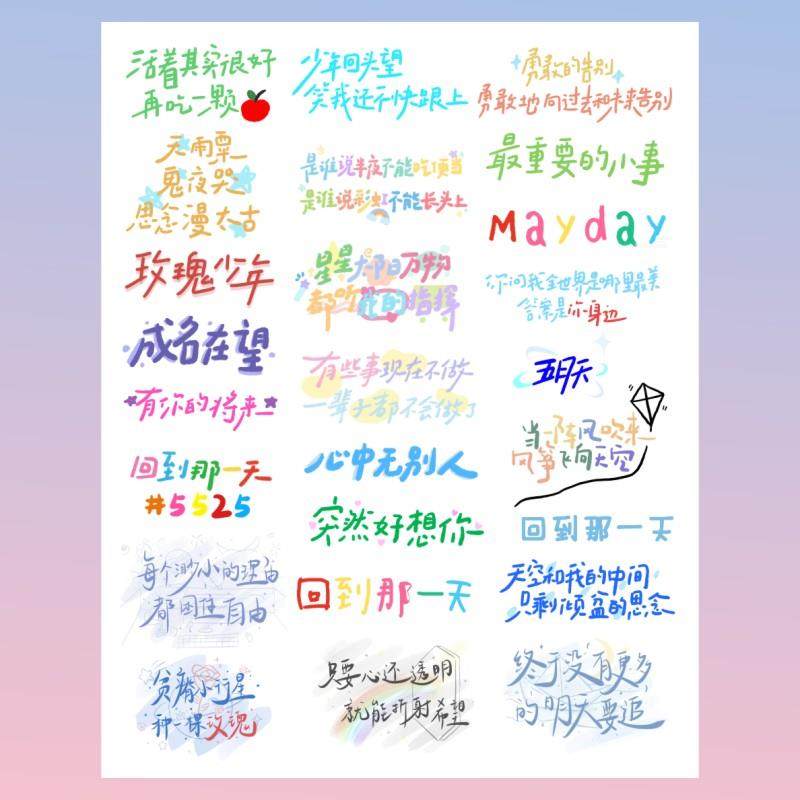 活着其实很好
再吃一颗
天雨粟
鬼夜哭
思念漫太古
玫瑰少年
成名在望
有你的将来
回到那一天
#5525
每个渺小的理由
都困住自由
贫瘠小行星
种一棵玫瑰
少年回头望
笑我还不快跟上
是谁说半夜不能吃顶当
是谁说彩虹不能长头上
星星太阳万物
都听我的指挥
有些事现在不做
一辈子都不会做了
心中无别人
突然好想你
回到那一天
只要心还透明
就能折射希望
勇敢的告别
勇敢地向过去和未来告别
最重要的小事
Mayday
你问我全世界是哪里最美
答案是你身边
五月天
当一阵风吹来
风筝飞向天空
回到那一天
天空和我的中间
只剩倾盆的思念
终于没有更多
的明天要追